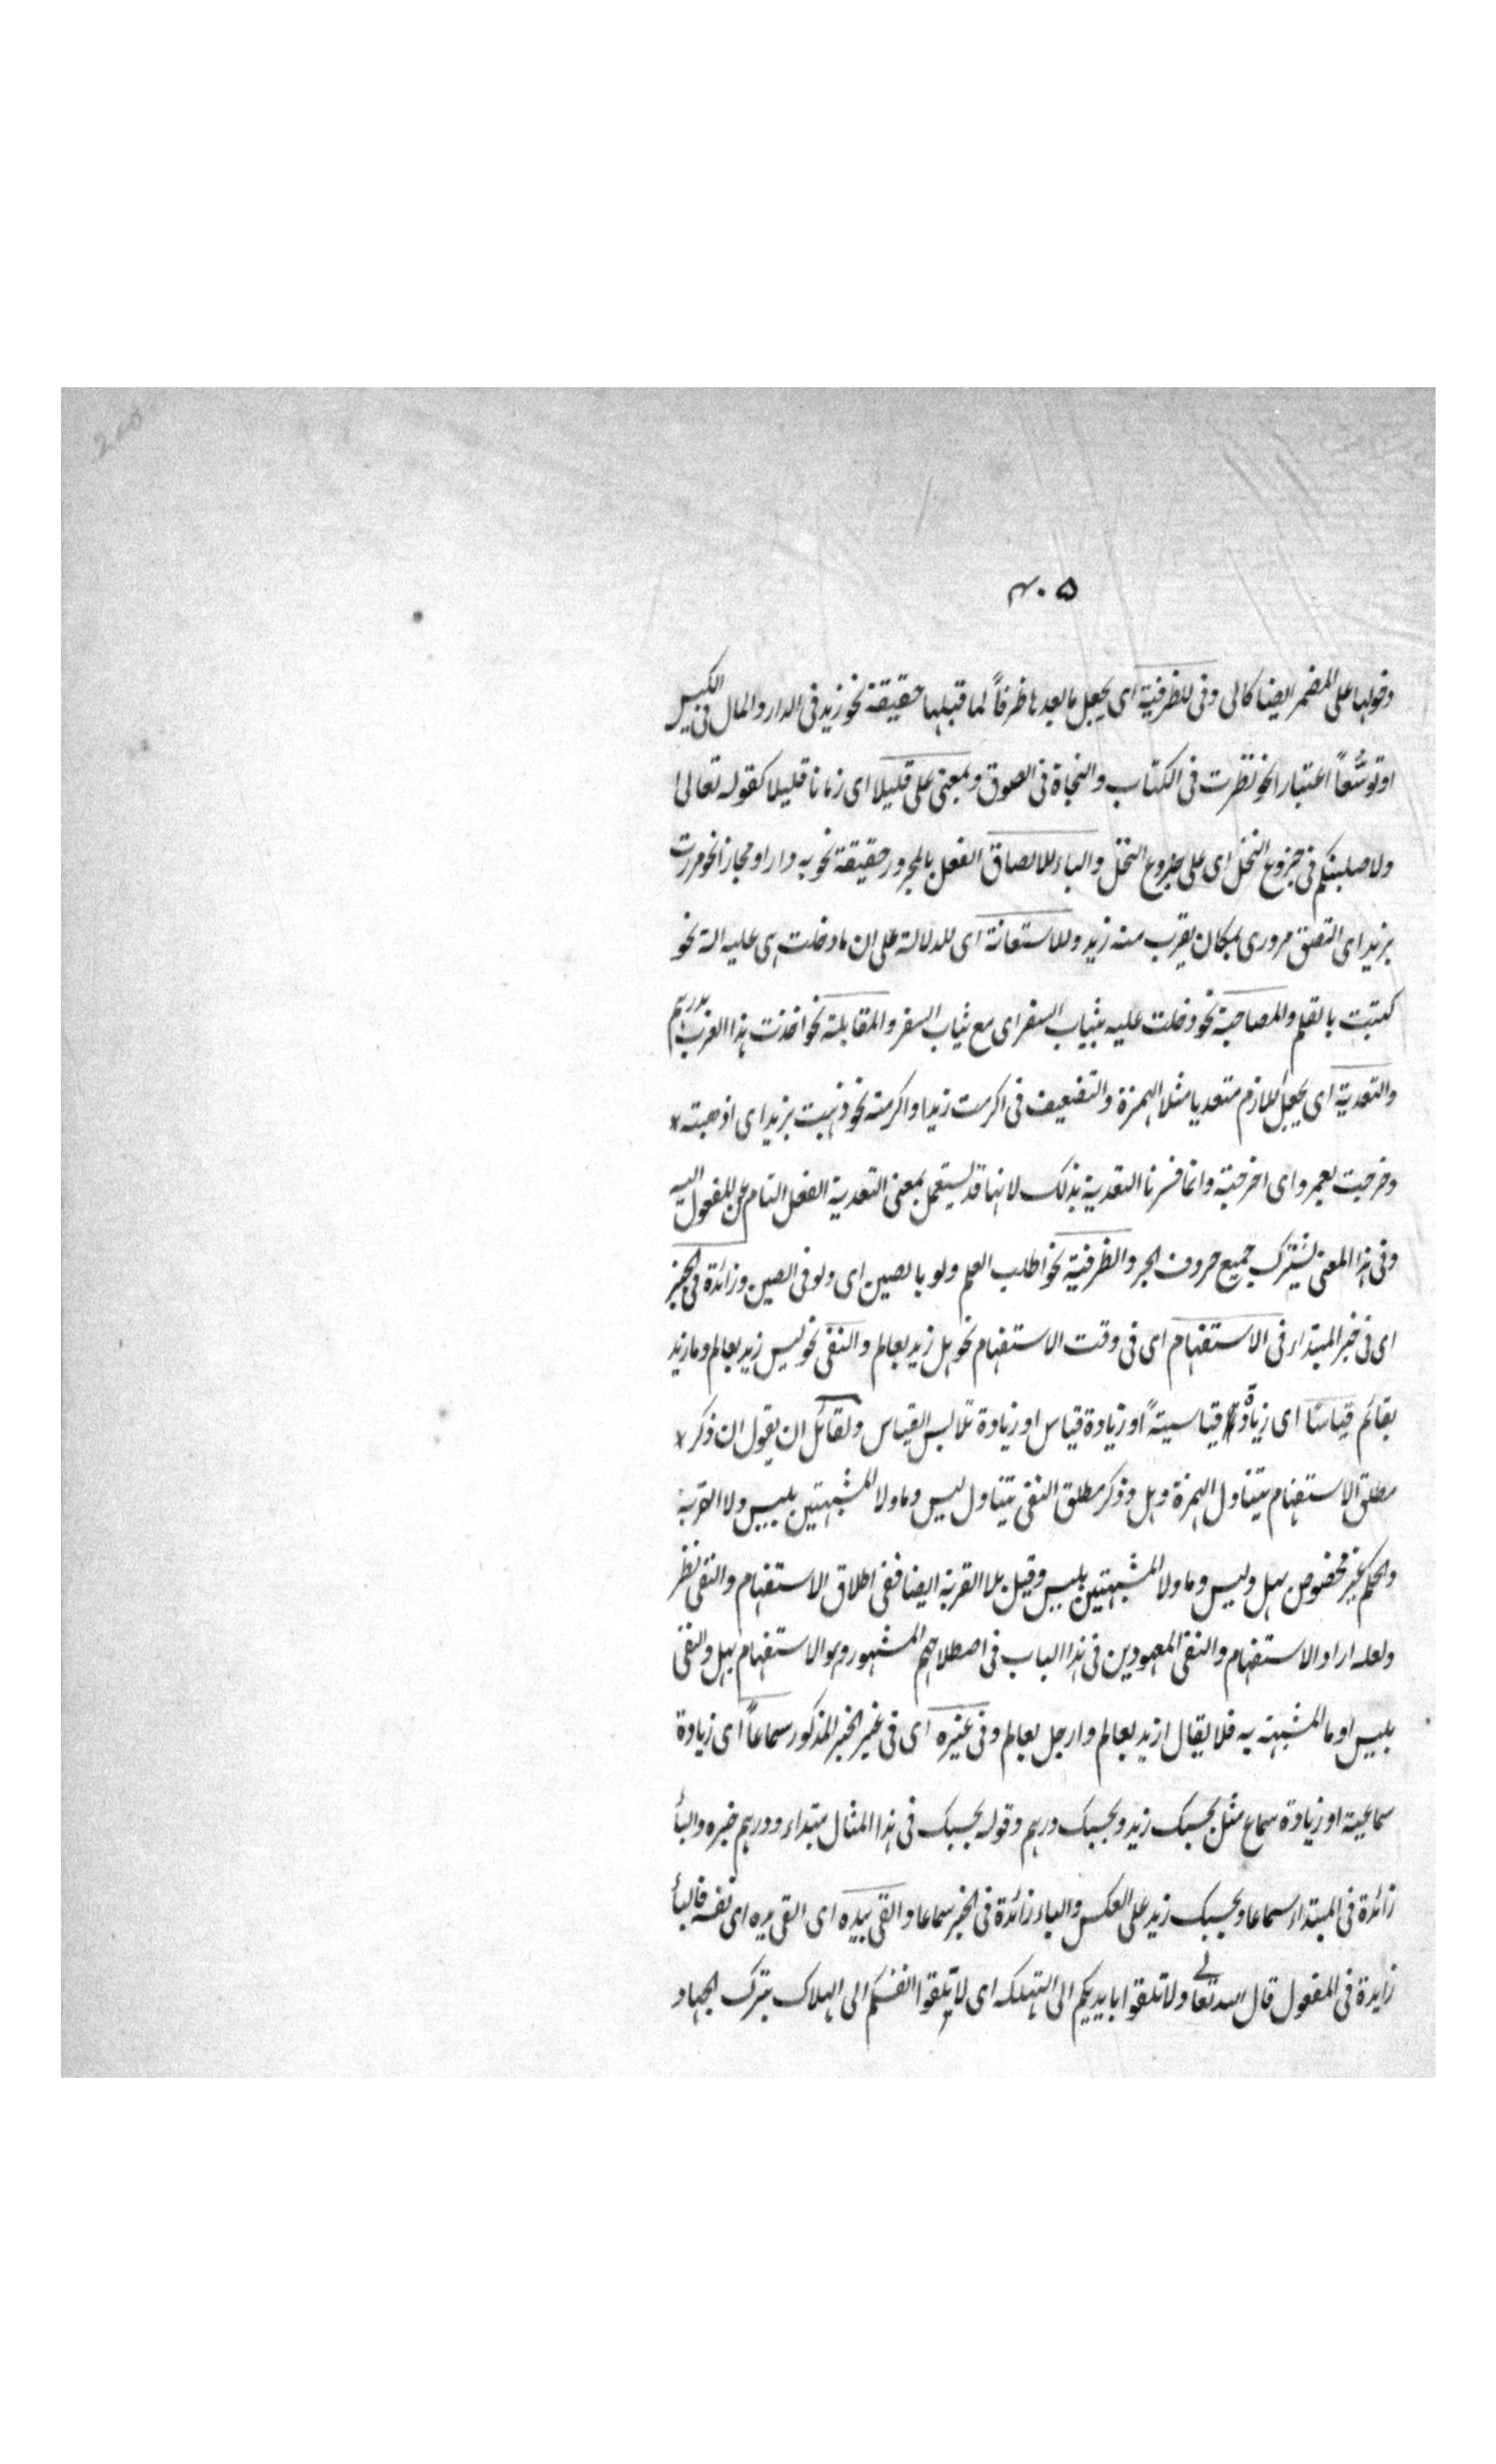 ۴۰۵
دخولها على المضمر ايضا كالى وفى للظرفية اى يجعل ما بعدها ظرفاً لما قبلها حقيقة نحو زيد فى الدار والمال فى الكيس
او توسّعاً اعتبارا نحو نظرت فى الكتاب والنجاة فى الصدق وبمعنى على قليلا اى زمانا قليلا كقوله تعالى
ولاصلبنكم فى جذوع النخل اى على جذوع النخل والباء للالصاق الفعل بالمجرور حقيقة نحو به داء او مجازا نحو مررت
بزيد اى التصق مرورى بمكان يقرب منه زيد وللاستعانة اى للدلالة على ان ما دخلت هى عليه الة نحو
كتبت بالقلم والمصاحبة نحو دخلت عليه بثياب السفر اى مع ثياب السفر والمقابلة نحو اخذت هذا بدرهم
والتعدية اى يجعل اللازم متعديا مثلا الهمزة والتضعيف فى اكرمت زيدا واكرمته نحو ذهبت بزيد اى اذهبته
وخرجت بعمرو اى اخرجته وانما فسرنا التعدية بذلك لانها قد يستعمل بمعنى التعدية الفعل التام عن المفعول اليه
وفى هذا المعنى يشترك جميع حروف الجر والظرفية نحو اطلب العلم ولو بالصين اى ولو فى الصين وزائدة فى الخبر
اى فى خبر المبتداء فى الاستفهام اى فى وقت الاستفهام نحو هل زيد بعالم والنفى نحو ليس زيد بعالم وما زيد
بقائم قياسًا اى زيادة قياسيةً او زيادة قياس او زيادة تلابس القياس ولقائل ان يقول ان ذكر
مطلق الاستفهام يتناول الهمزة وهل وذكر مطلق النفى يتناول ليس وما ولا المشبهتين بليس ولا التبرية
والحكم بخبر مخصوص بهل وليس وما ولا المشبهتين بليس وقيل بلا التبرية ايضا ففى اطلاق الاستفهام والنفى نظر
ولعله اراد الاستفهام والنفى المعهودين فى هذا الباب فى اصطلاحهم المشهور وهو الاستفهام بهل والنفى
بليس او ما المشبهة به فلا يقال ازيد بعالم وارجل بعالم وفى غيره اى فى غير الخبر المذكور سماعاً اى زيادة
سماعية او زيادة سماع مثل بحسبك زيد وبحسبك درهم وقوله بحسبك فى هذا المثال مبتداء ودرهم خبره والبأ
زائدة فى المبتداء سماعا وبحسبك زيد على العكس والباء زائدة فى الخبر سماعا والقى بيده اى القى يده اى نفسه فالبأ
زايدة فى المفعول قال الله تعالى ولا تلقوا بايديكم الى التهلكه اى لا تلقوا انفسكم الى الهلاك بترك الجهاد